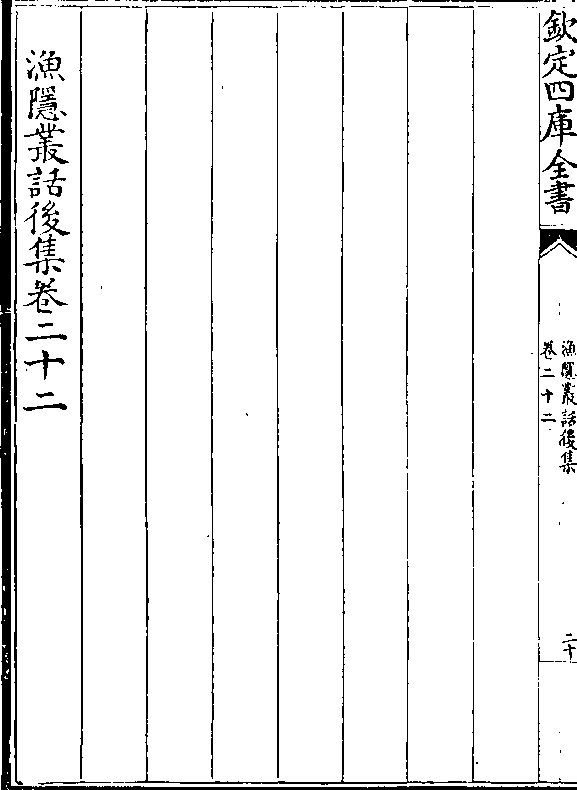 欽定四庫全書
漁隱叢話後集
卷二十二
二十
漁隱叢話後集卷二十二